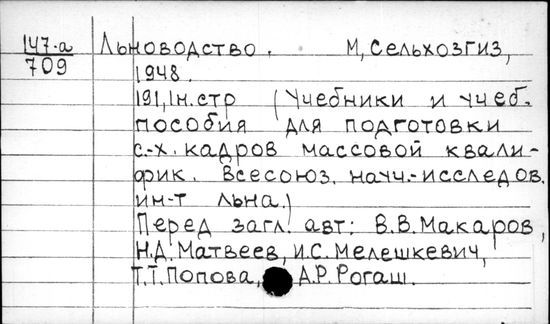 147-а Льноводство. М, Сельхозгиз,
709 1948.
191,1н.стр (Учебники и учеб.
пособия для подготовки
с.-х. кадров массовой квали-
фик. Всесоюз. научн.-исследов.
ин-т льна.)
Перед загл. авт: В.В.Макаров,
Н.Д.Матвеев, И.С.Мелешкевич,
Т.Т.Попова, А.Р.Рогаш.